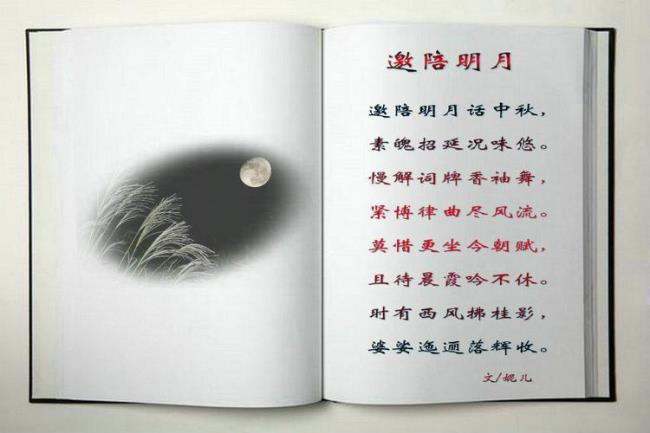 邀陪明月
邀陪明月话中秋，
素魄招延况味悠。
慢解词牌香袖舞，
紧博律曲尽风流。
莫惜更坐今朝赋，
且待晨霞吟不休。
时有西风拂桂影，
婆娑迤逦落辉收。
文/妮儿